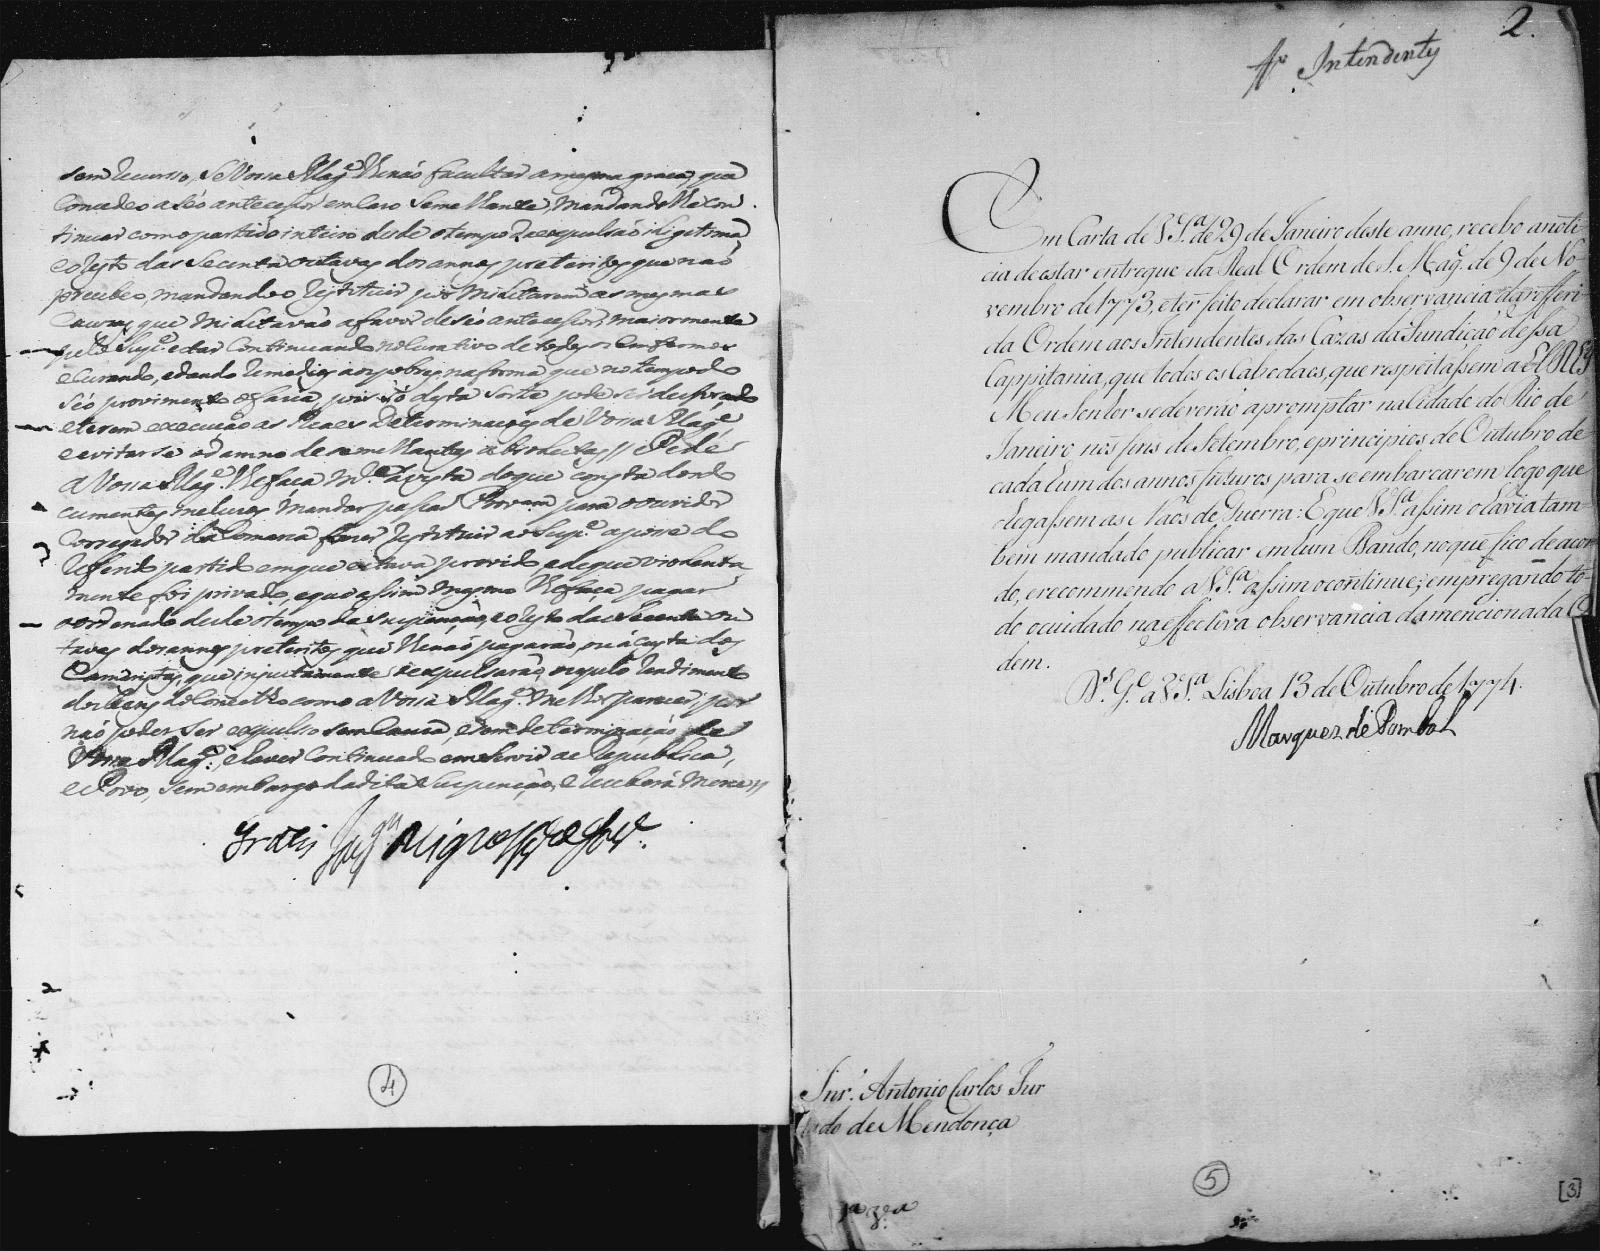 sem recurso, se Vossa Mag.e lhe não facultar a mesma graça, que
Concedeo a seo antecessor em Caso Semelhante, mandando lhe con
tinuar com o partido inteiro desde o tempo da expulsão illigitima,
e o resto das Secenta outavas dos annos preteritos que não
precebeo, mandando o restituir, pois militarem as mesmas
Cauzas que militavão a favor de seo antecessor, maiormente
pelo Sup.e estar Continuando no Curativo de todos os emfermos
e Curando, e dando remedios aos pobres na forma que no tempo do
seo provimento o fazia, pois só desta sorte
e terem execução as Reaes Determinaçoens de Vossa Mag.e
e evitarse o damno de semelhantes // Pede
a Vossa Mag.e lhe faça M.ce á vista do que consta dos do
cumentos inclusos mandar passar Provm para o ouvidor
Corregedor da Comarca fazer restituir ao Sup.e a posse do
referido partido em que estava provido e de que violenta
mente foi privado, e que assim mesmo lhe faça pagar
o ordenado desde o tempo da suspenção, e o resto das Secenta ou
tavas dos annos preteritos que lhe não pagarão, ou á custa dos
Camaristas, que injustamente o expulsarão, ou pelo rendimento
dos bens do Concelho como a Vossa Mag.e melhor parecer; por
não poder ser expulso sem Cauza, e sem determinação de
Vossa Mag.e, e haver Continuado em servir a Republica,
e o Povo, sem embargo da dita Suspenção, E recebera Merce //
Gratis
4
2.
P.a Intendentes
Em Carta de V S.a de 29 de Janeiro deste anno, recebo a noti-
cia de estar entregue da Real Ordem de S. Mag.e de 9 de No-
vembro de 1773, e ter feito declarar em observancia da refferi-
da Ordem aos Intendentes das Cazas da Fundição dessa
Cappitania, que todos os Cabedaes, que respeitassem a EL REY
Meu Senhor se deverão apromptar na Cidade do Rio de
Janeiro nos fins de Setembro, e principios de Outubro de
cada hum dos annos futuros para se embarcarem logo que
chegassem as Náos de Guerra: E que V S.a assim o havia tam-
bem mandado publicar em hum Bando, no que fico de acor-
do, e recommendo a V. S.a assim o continue, empregando to-
do o cuidado na effectiva observancia da mencionada Or-
dem.
D.s G.e a V. S.a Lisboa 13 de Outubro de 1774.
Marquez de Pombal
Snr. Antonio Carlos Fur
tado de Mendonça
1.a via
5
[3]